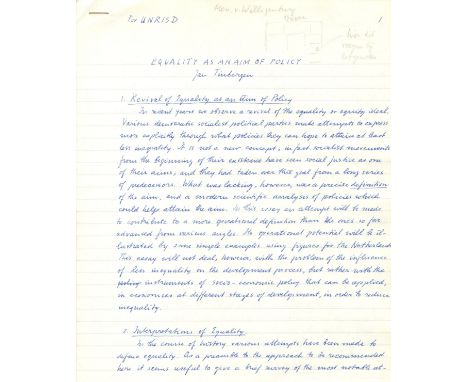 For UNRISD
1
EQUALITY AS AN AIM OF POLICY
Jan Tinbergen
1. Revival of Equality as an Aim of Policy
In recent years we observe a revival of the equality or equity ideal.
Various democratic socialist political parties make attempts to express
more explicitly through what policies they can hope to attain at least
less inequality. It is not a new concept; in fact socialist movements
from the beginning of their existence have seen social justice as one
of their aims, and they had taken over this goal from a long series
of predecessors. What was lacking, however, was a precise definition
of the aim, and a modern scientific analysis of policies which
could help attain the aim. In this essay an attempt will be made
to contribute to a more operational definition than the ones so far
advanced from various angles. Its operational potential will be il-
lustrated by some simple examples, using figures for the Netherlands.
This essay will not deal, however, with the problem of the influence
of less inequality on the development process, but rather with the
policy instruments of socio-economic policy that can be applied,
in economies at different stages of development, in order to reduce
inequality.
2. Interpretations of Equality
In the course of history various attempts have been made to
define equality. As a preamble to the approach to be recommended
here it seems useful to give a brief survey of the most notable at-